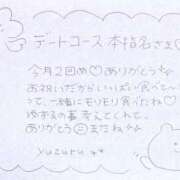 デートコース 本指名さま♡
今月2回め♡ありがとう☆
お祝いだからいっぱい食べよって
一緒にモリモリ食べたね♡
ゆずるの事考えてくれて、
ありがとう☺またね☆
yuzuru